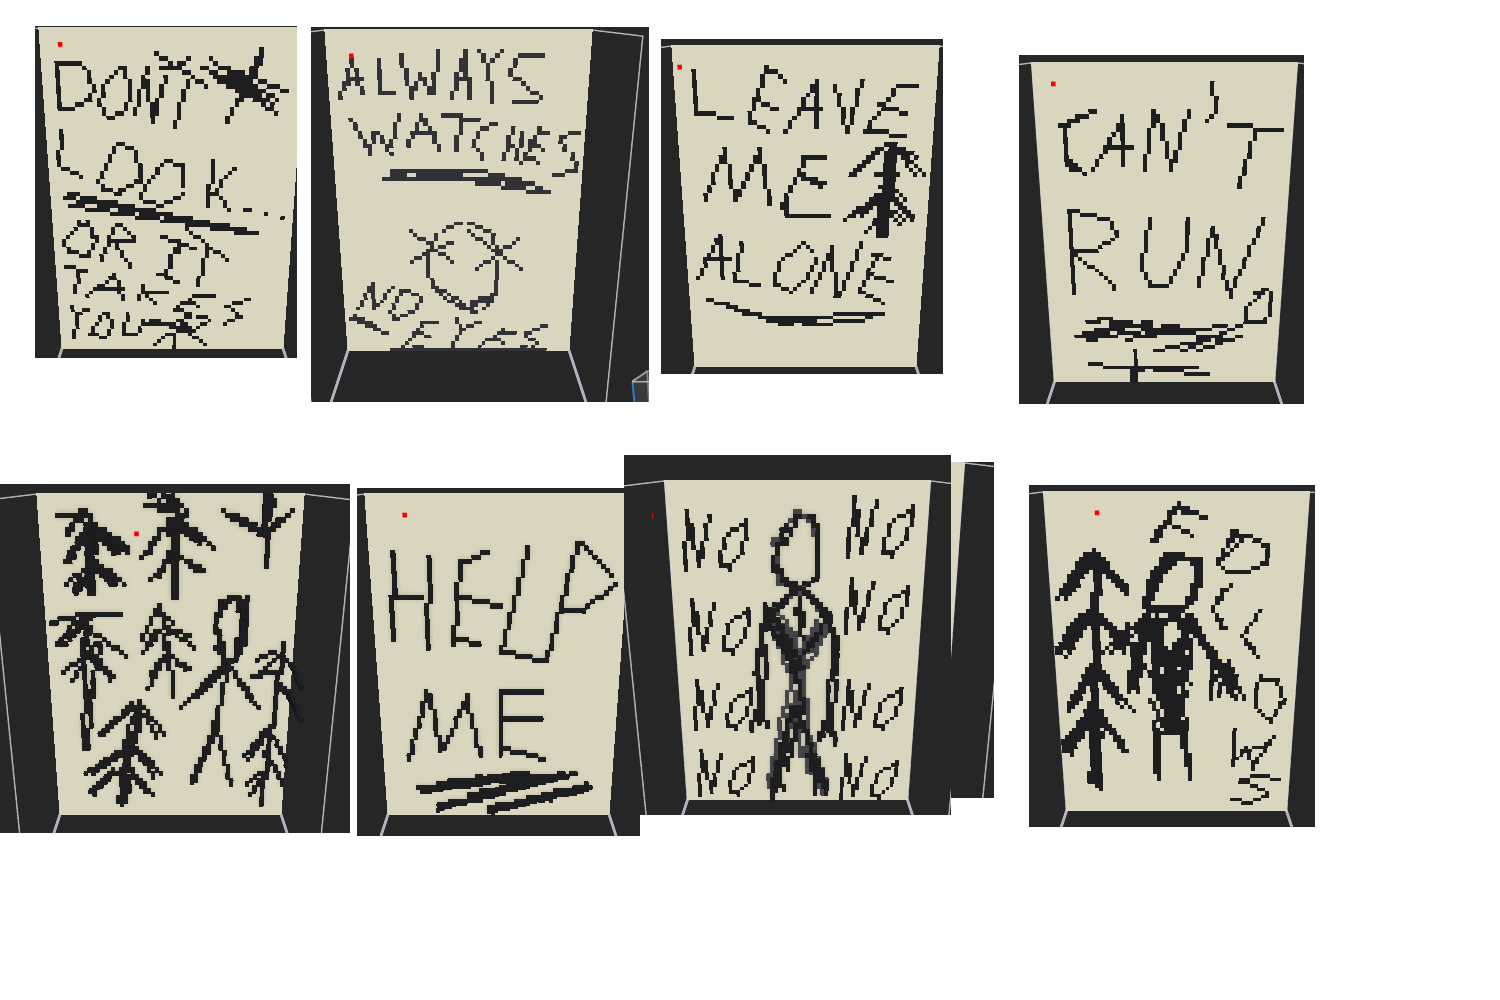 DON'T
LOOK...
OR IT
TAKES
YOU
ALWAYS
WATCHES
NO
EYES
LEAVE
ME
ALONE
CAN'T
RUN
HELP
ME
NO NO
NO NO
NO NO
NO NO
FOLLOWS